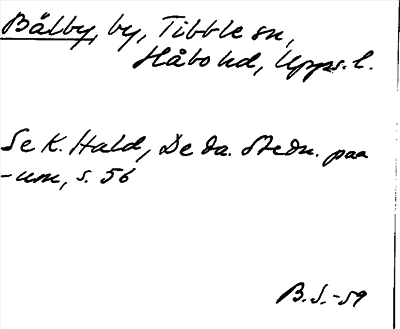 Bälby, by, Tibble sn,
Håbo hd, Upps. l.
Se K. Hald, De da. Stedn. paa
-um, s. 56
B.S.-59